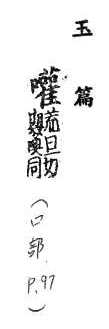 玉篇
嚾荒旦切
與喚同
(口部 P.97)